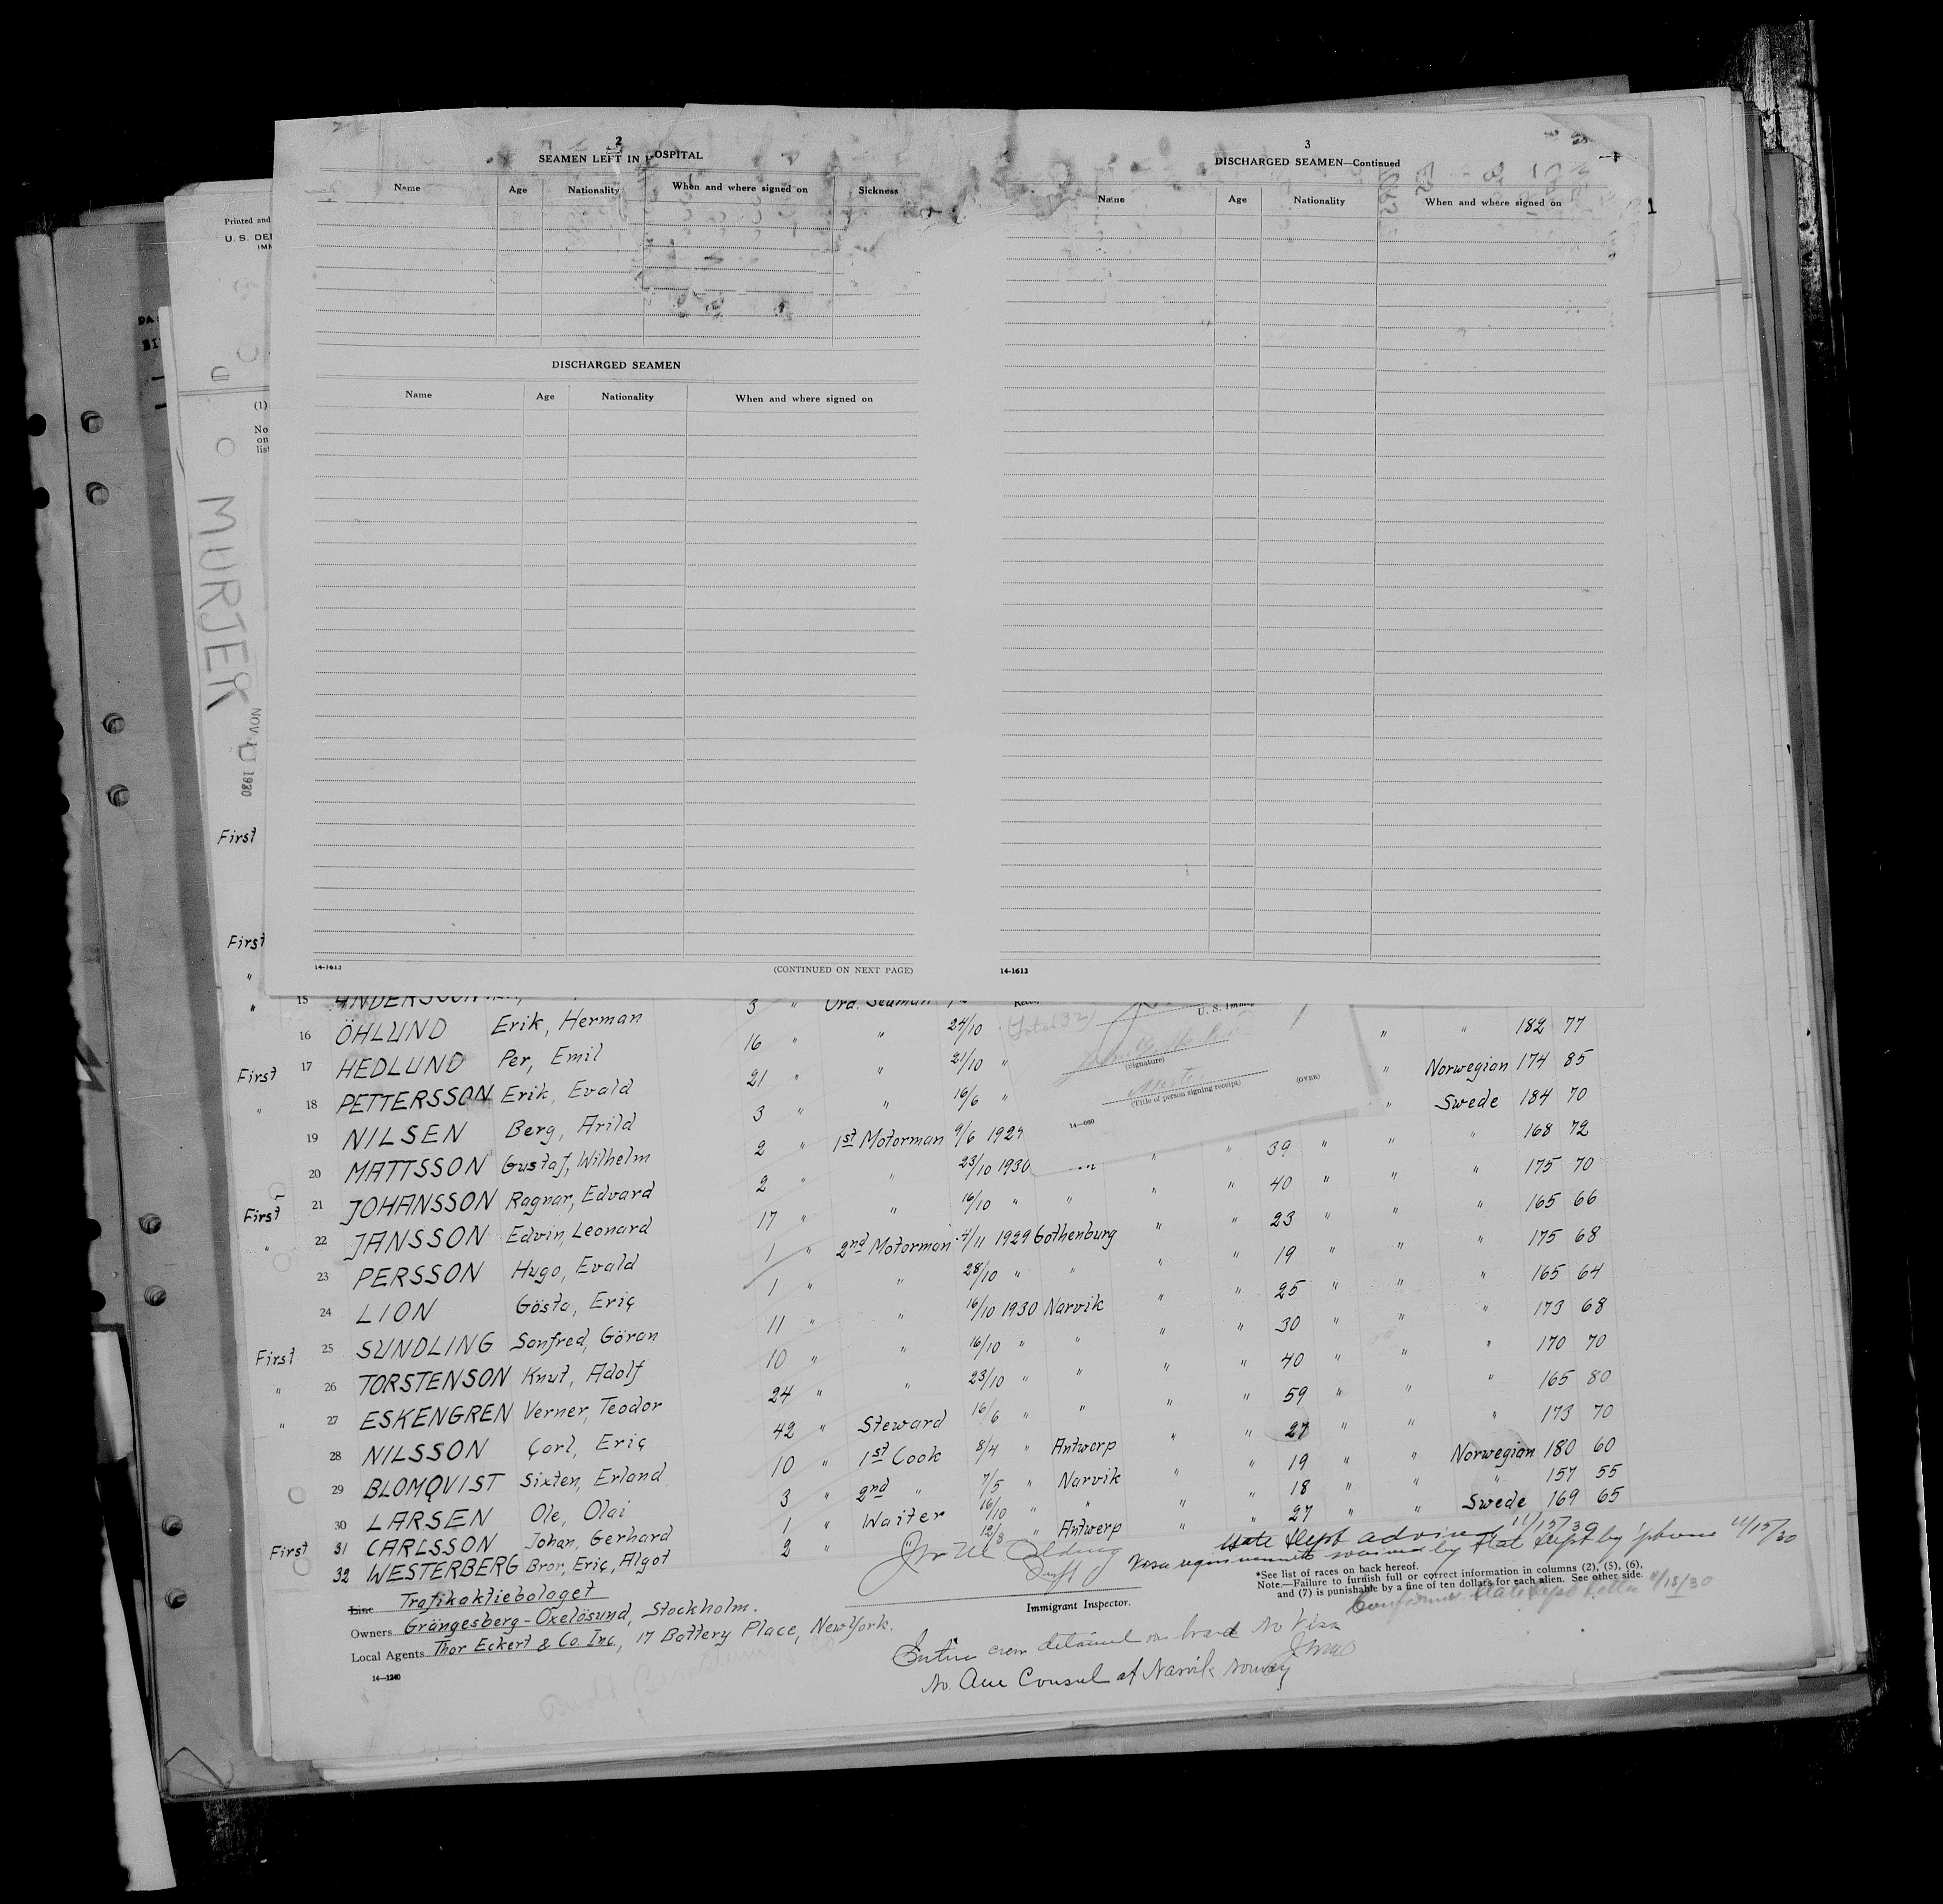 2
SEAMEN LEFT IN HOSPITAL
Name Age Nationality When and where signed on Sickness
DISCHARGED SEAMEN
Name Age Nationality When and where signed on
14-1613 (CONTINUED ON NEXT PAGE)
3
DISCHARGED SEAMEN—Continued
Name Age Nationality When and where signed on
14-1613
Printed and
U. S. DE
IMM
(1)
No
on
list
MURJEK
NOV 1930
First
First
"
" 15 ANDERSSON 3 " Ord. Seaman
16 ÖHLUND Erik, Herman 16 " " 24/10 " " 182 77
First 17 HEDLUND Per, Emil 21 " " 21/10 " " Norwegian 174 85
" 18 PETTERSSON Erik, Evald 3 " " 16/6 " " Swede 184 70
19 NILSEN Berg, Arild 2 " 1st Motorman 9/6 1929 39 " " " 168 72
20 MATTSSON Gustaf, Wilhelm 2 " " 23/10 1930 " " 40 " " " 175 70
First 21 JOHANSSON Ragnar, Edvard 17 " " 16/10 " " " " 23 " " " 165 66
" 22 JANSSON Edvin, Leonard 1 " 2nd Motorman 4/11 1929 Gothenburg " " 19 " " " 175 68
23 PERSSON Hugo, Evald 1 " " 28/10 " " " " 25 " " " 165 64
24 LION Gösta, Eric 11 " " 16/10 1930 Narvik " " 30 " " " 173 68
First 25 SUNDLING Sanfred, Göran 10 " " 16/10 " " " " 40 " " " 170 70
" 26 TORSTENSON Knut, Adolf 24 " " 23/10 " " " " 59 " " " 165 80
" 27 ESKENGREN Verner, Teodor 42 " Steward 16/6 " " " " 27 " " " 173 70
28 NILSSON Carl, Eric 10 " 1st Cook 8/4 " Antwerp " " 19 " " Norwegian 180 60
29 BLOMQVIST Sixten, Erland 3 " 2nd " 7/5 " Narvik " " 18 " " " 157 55
30 LARSEN Ole, Olai 1 " Waiter 16/10 " " " " 27 " " Swede 169 65
First 31 CARLSSON Johan, Gerhard 2 " " 12/8 " Antwerp
32 WESTERBERG Bror, Eric, Algot
(Total 32)
U. S. Immig
(Signature)
(Title of person signing receipt)
(OVER)
14—680
State Dept advised 11/15/30
Visa requirements waived by State Dept by 'phone 11/15/30
*See list of races on back hereof.
Note.—Failure to furnish full or correct information in columns (2), (5), (6),
and (7) is punishable by a fine of ten dollars for each alien. See other side.
Confirmed State Dept Letter 11/18/30
Immigrant Inspector.
Line Trafikaktiebolaget
Owners Grängesberg-Oxelösund, Stockholm.
Local Agents Thor Eckert & Co. Inc., 17 Battery Place, New York.
14—1240
Entire crew detained on board No Visa
No Am Consul at Narvik Norway